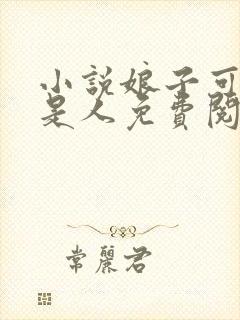 小說娘子可
是人免費閱
常麗君